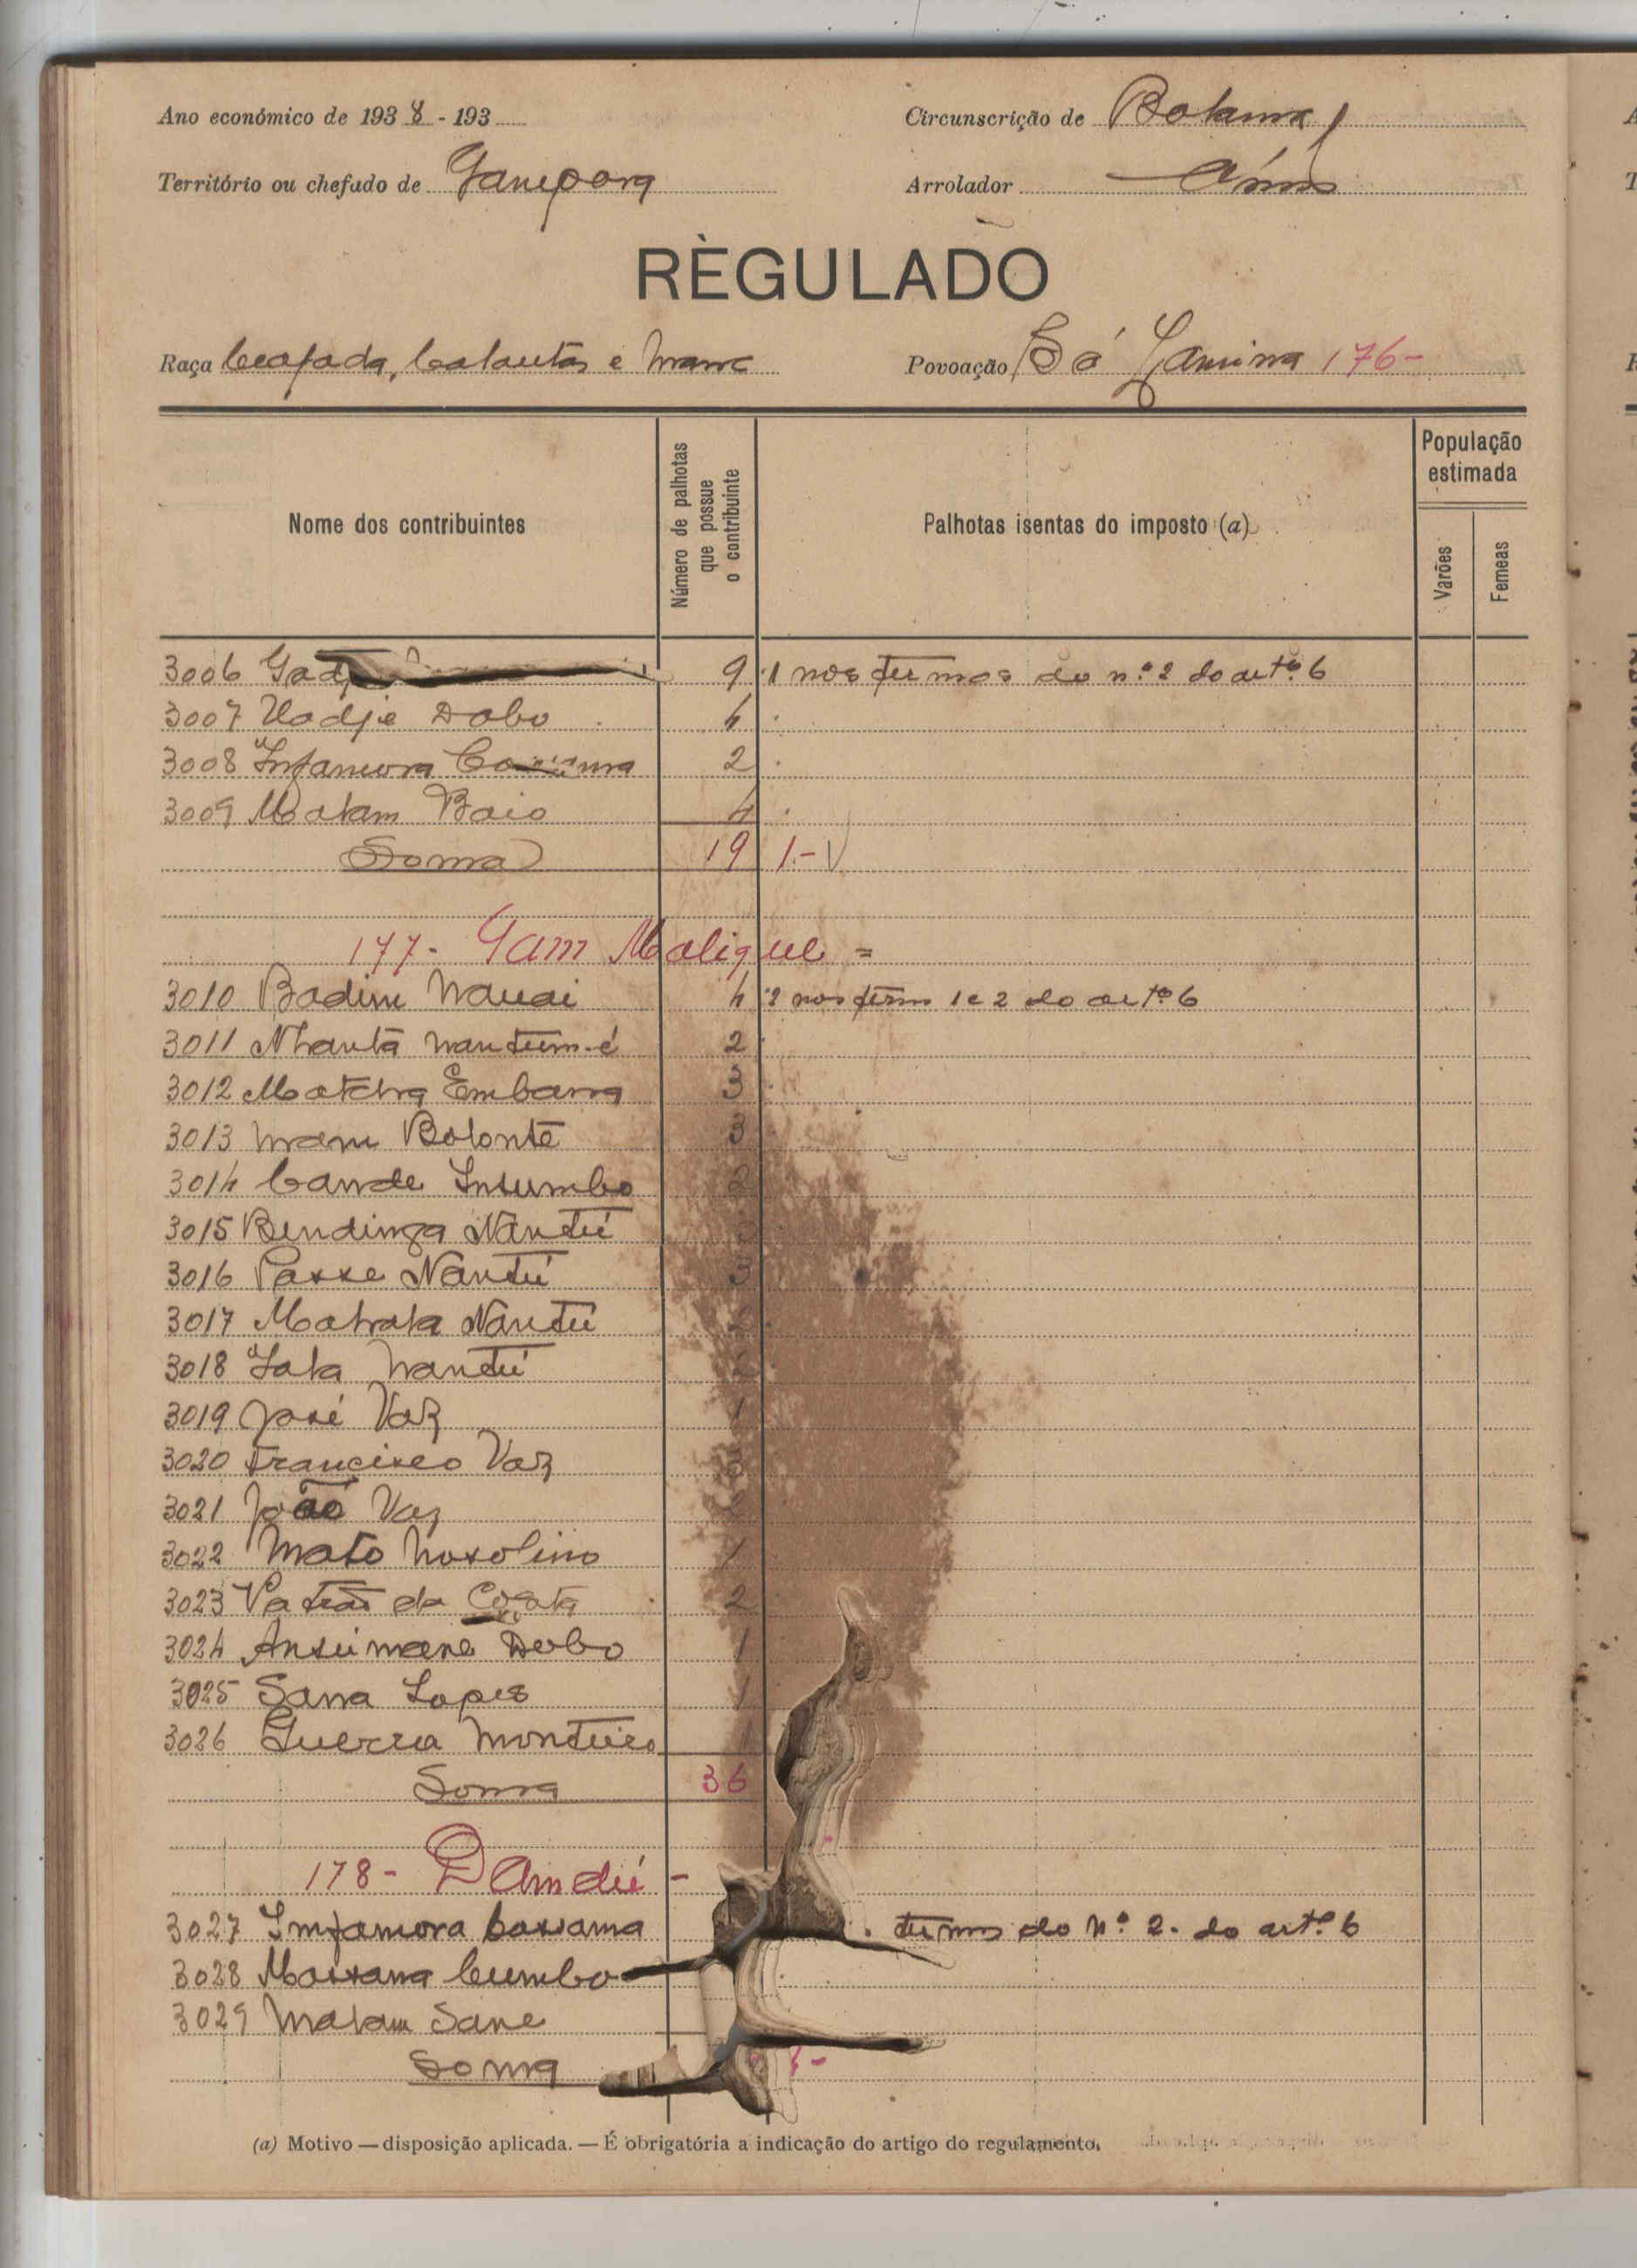 Ano económico de 1938 - 193
Circunscrição de Bolama
Território ou chefado de
Arrolador
RÈGULADO
Raça Beafada, balantas e manc
Povoação Bá 176-
Nome dos contribuintes
Número de palhotas que possue o contribuinte
Palhotas isentas do imposto (a)
População estimada
Varões
Femeas
3006 9 1 nos termos do n.º 2 do artº. 6
3007 Uadje Dabo 4
3008 Infamora 2
3009 Malam Baio 4
Soma 19 1.-
177- Gam Malique =
3010 Badim 4 2 nos term 1 e 2 do artº 6
3011 Nhantã 2
3012 Embana 3
3013 Bolonte 3
3014 Cande Insumbo 2
3015 Bendinga Nantú
3016 Passe Nantú 3
3017 Nantú
3018 Iala Nantú
3019 José Vaz 1
3020 Francisco Vaz 3
3021 João Vaz
3022 Mato 1
3023 da Costa 2
3024 Ansumane Dabo 1
3025 Sana Lopes 1
3026 Guerra Monteiro 1
Soma 36
178- Dandú -
3027 Infamora Cassama termos do Nº 2. do artº 6
3028 Massana Cumbo
3029 Malam Sane
Soma
(a) Motivo — disposição aplicada. — É obrigatória a indicação do artigo do regulamento.